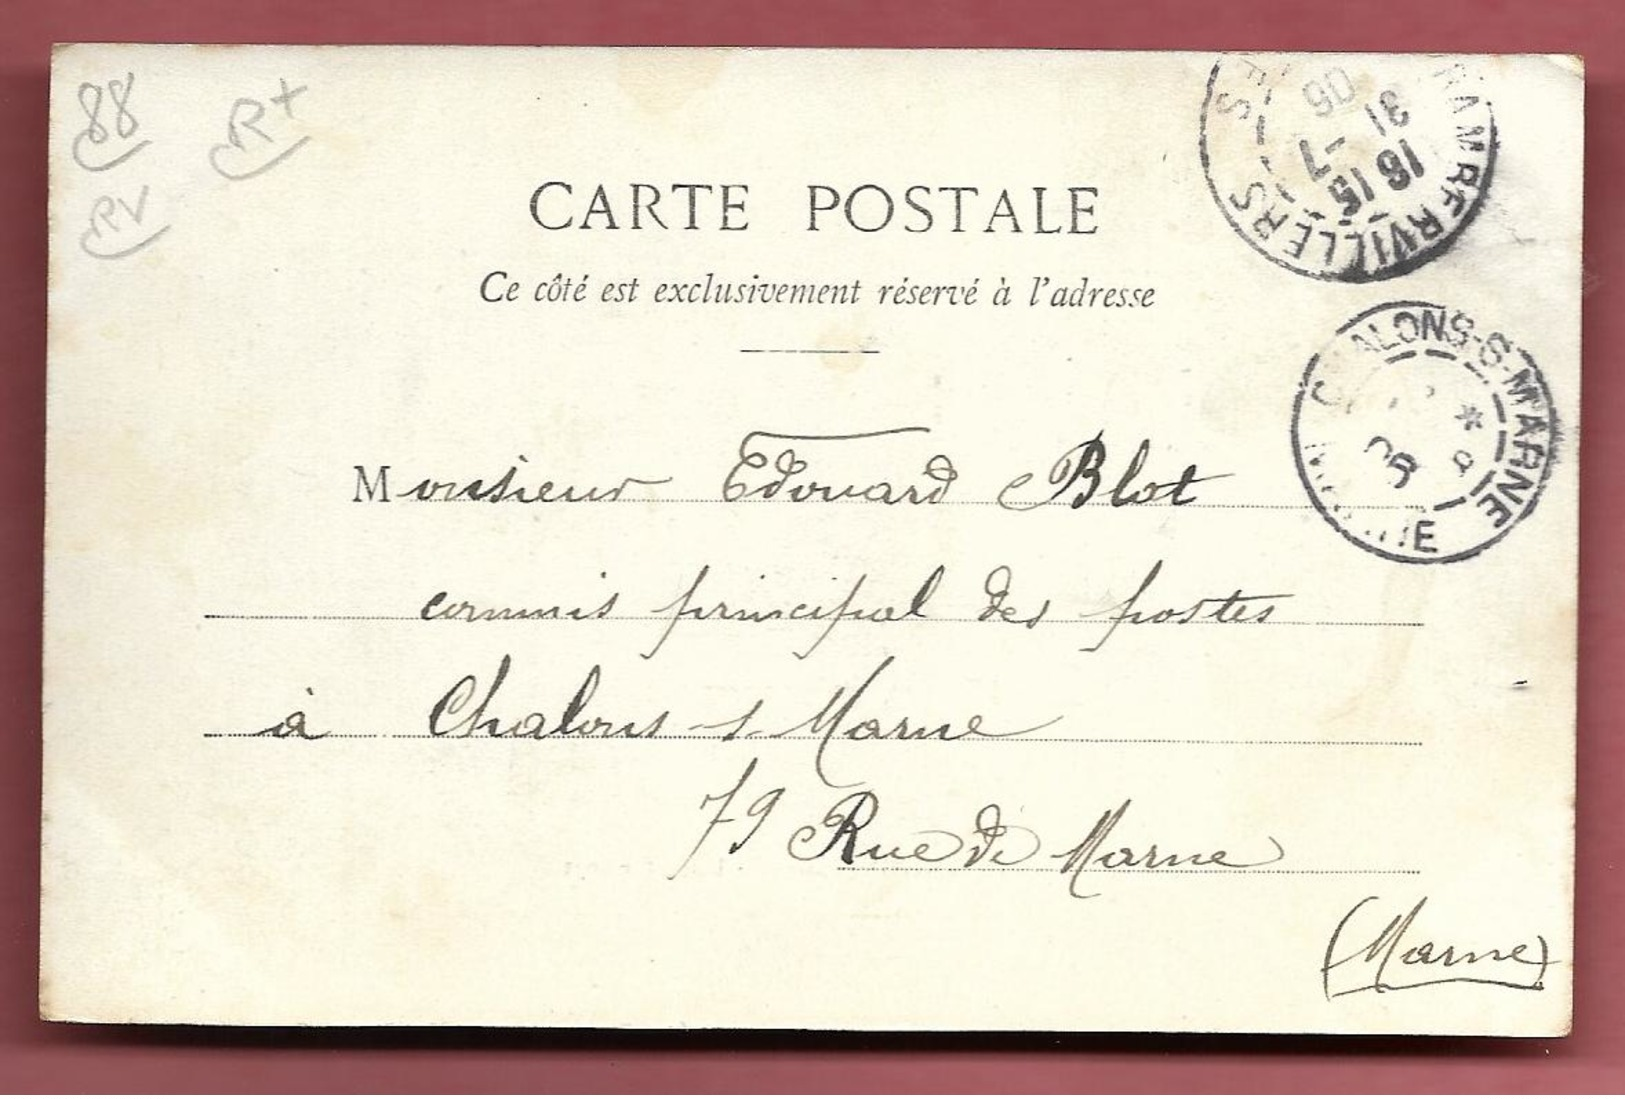 88
R+
RV
RAMBERVILLERS
16 15
31 - 7
06
CARTE POSTALE
Ce côté est exclusivement réservé à l'adresse
CHALONS-S-MARNE
Monsieur Edouard Blot
commis principal des postes
à Chalons-s-Marne
79 Rue de Marne
(Marne)